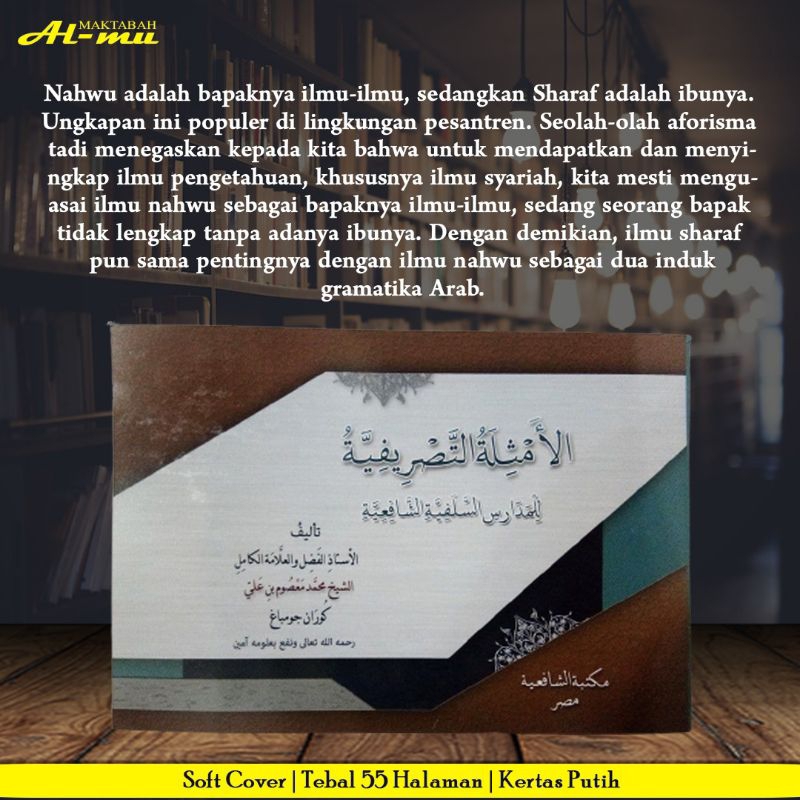 MAKTABAH
AL-mu
Nahwu adalah bapaknya ilmu-ilmu, sedangkan Sharaf adalah ibunya.
Ungkapan ini populer di lingkungan pesantren. Seolah-olah aforisma
tadi menegaskan kepada kita bahwa untuk mendapatkan dan menyi-
ngkap ilmu pengetahuan, khususnya ilmu syariah, kita mesti mengu-
asai ilmu nahwu sebagai bapaknya ilmu-ilmu, sedang seorang bapak
tidak lengkap tanpa adanya ibunya. Dengan demikian, ilmu sharaf
pun sama pentingnya dengan ilmu nahwu sebagai dua induk
gramatika Arab.
الأَمْثِلَةُ التَّصْرِيفِيَّةُ
لِلْمَدَارِسِ السَّلَفِيَّةِ الشَّافِعِيَّةِ
تأليف
الأستاذ الفَضِل والعلّامة الكامل
الشيخ محمّد مَعْصُوم بن عَلي
كُورَان جومباغ
رحمه الله تعالى ونفع بعلومه آمين
مكتبة الشافعية
مصر
Soft Cover | Tebal 55 Halaman | Kertas Putih